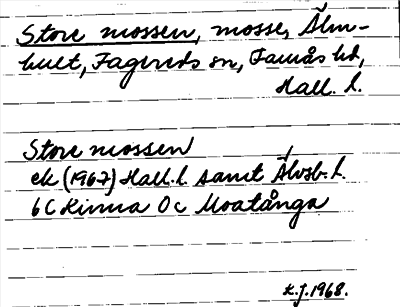 Store mossen, mosse, Älm-
hult, Fagereds sn, Faurås hd,
Hall. l.
Store mossen
ek (1967) Hall. l. samt Älvsb. l.
6C Kinna 0c Moatånga
K.J. 1968.